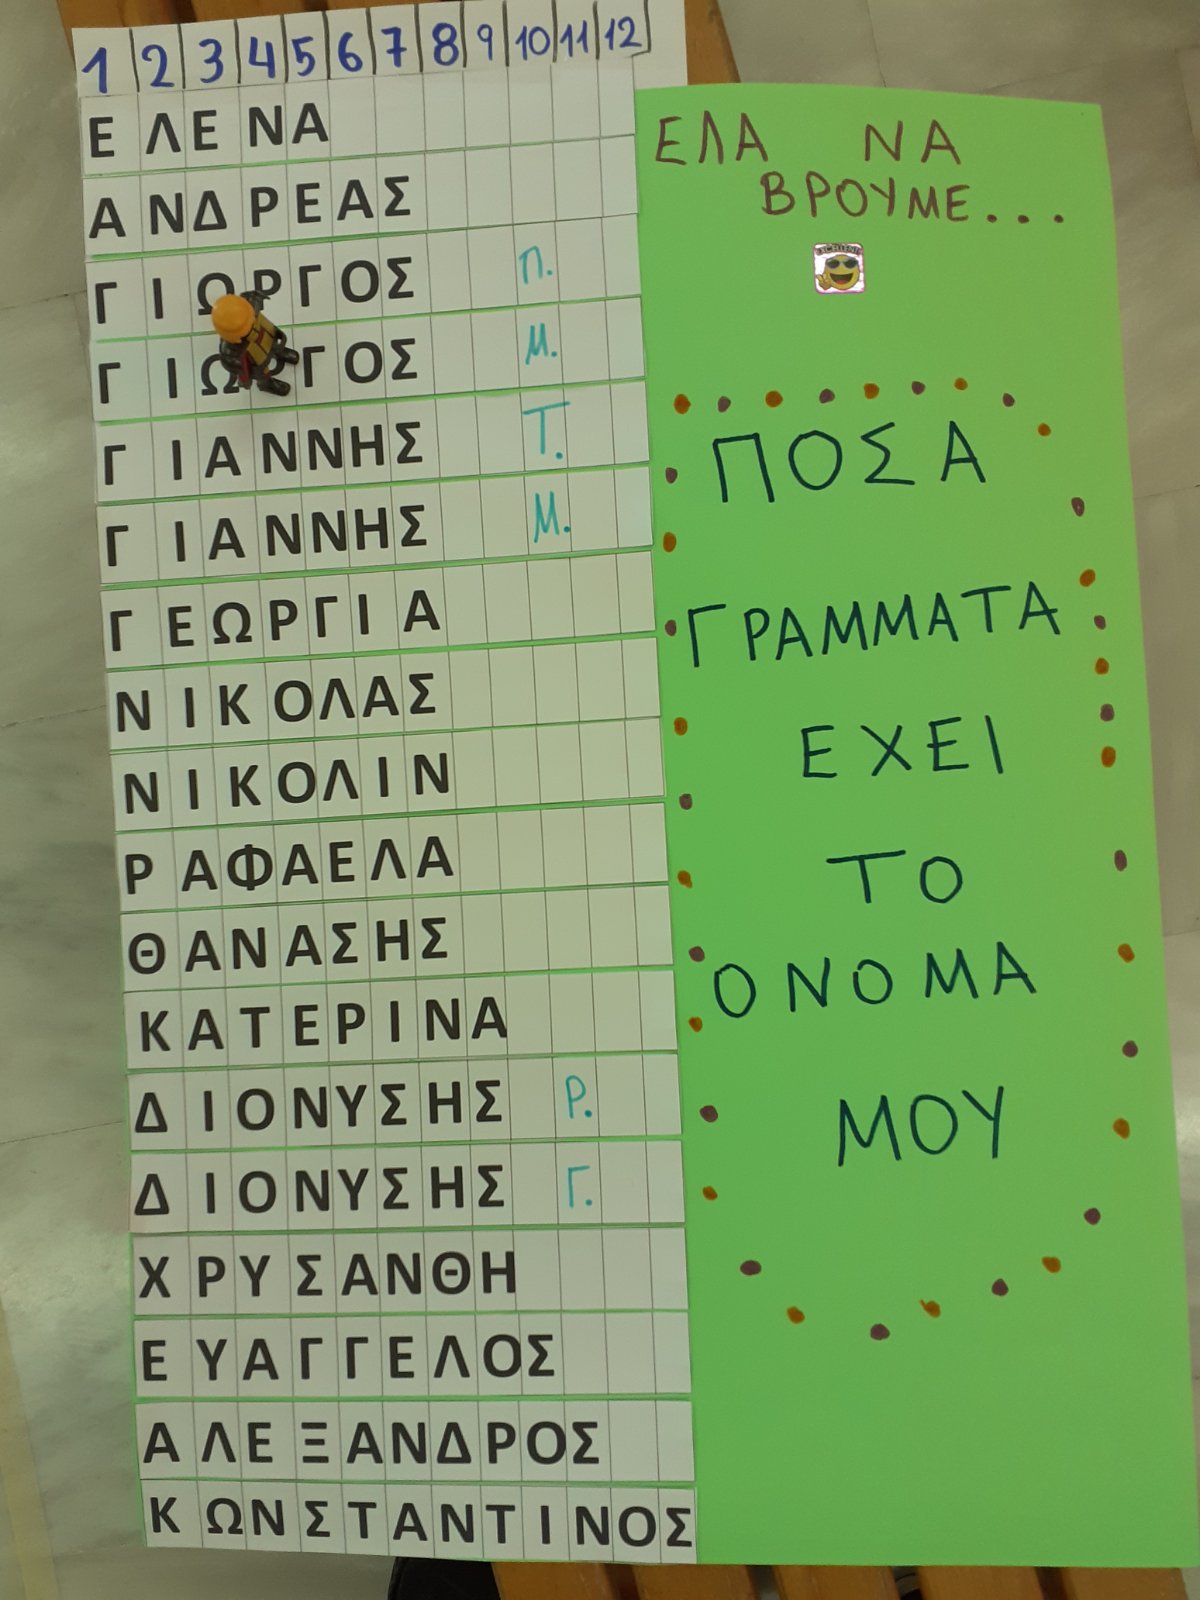 1 2 3 4 5 6 7 8 9 10 11 12
ΕΛΕΝΑ
ΑΝΔΡΕΑΣ
ΓΙΩΡΓΟΣ Π.
ΓΙΩΡΓΟΣ Μ.
ΓΙΑΝΝΗΣ Τ.
ΓΙΑΝΝΗΣ Μ.
ΓΕΩΡΓΙΑ
ΝΙΚΟΛΑΣ
ΝΙΚΟΛΙΝ
ΡΑΦΑΕΛΑ
ΘΑΝΑΣΗΣ
ΚΑΤΕΡΙΝΑ
ΔΙΟΝΥΣΗΣ Ρ.
ΔΙΟΝΥΣΗΣ Γ.
ΧΡΥΣΑΝΘΗ
ΕΥΑΓΓΕΛΟΣ
ΑΛΕΞΑΝΔΡΟΣ
ΚΩΝΣΤΑΝΤΙΝΟΣ
ΕΛΑ ΝΑ
ΒΡΟΥΜΕ...
ΠΟΣΑ
ΓΡΑΜΜΑΤΑ
ΕΧΕΙ
ΤΟ
ΟΝΟΜΑ
ΜΟΥ